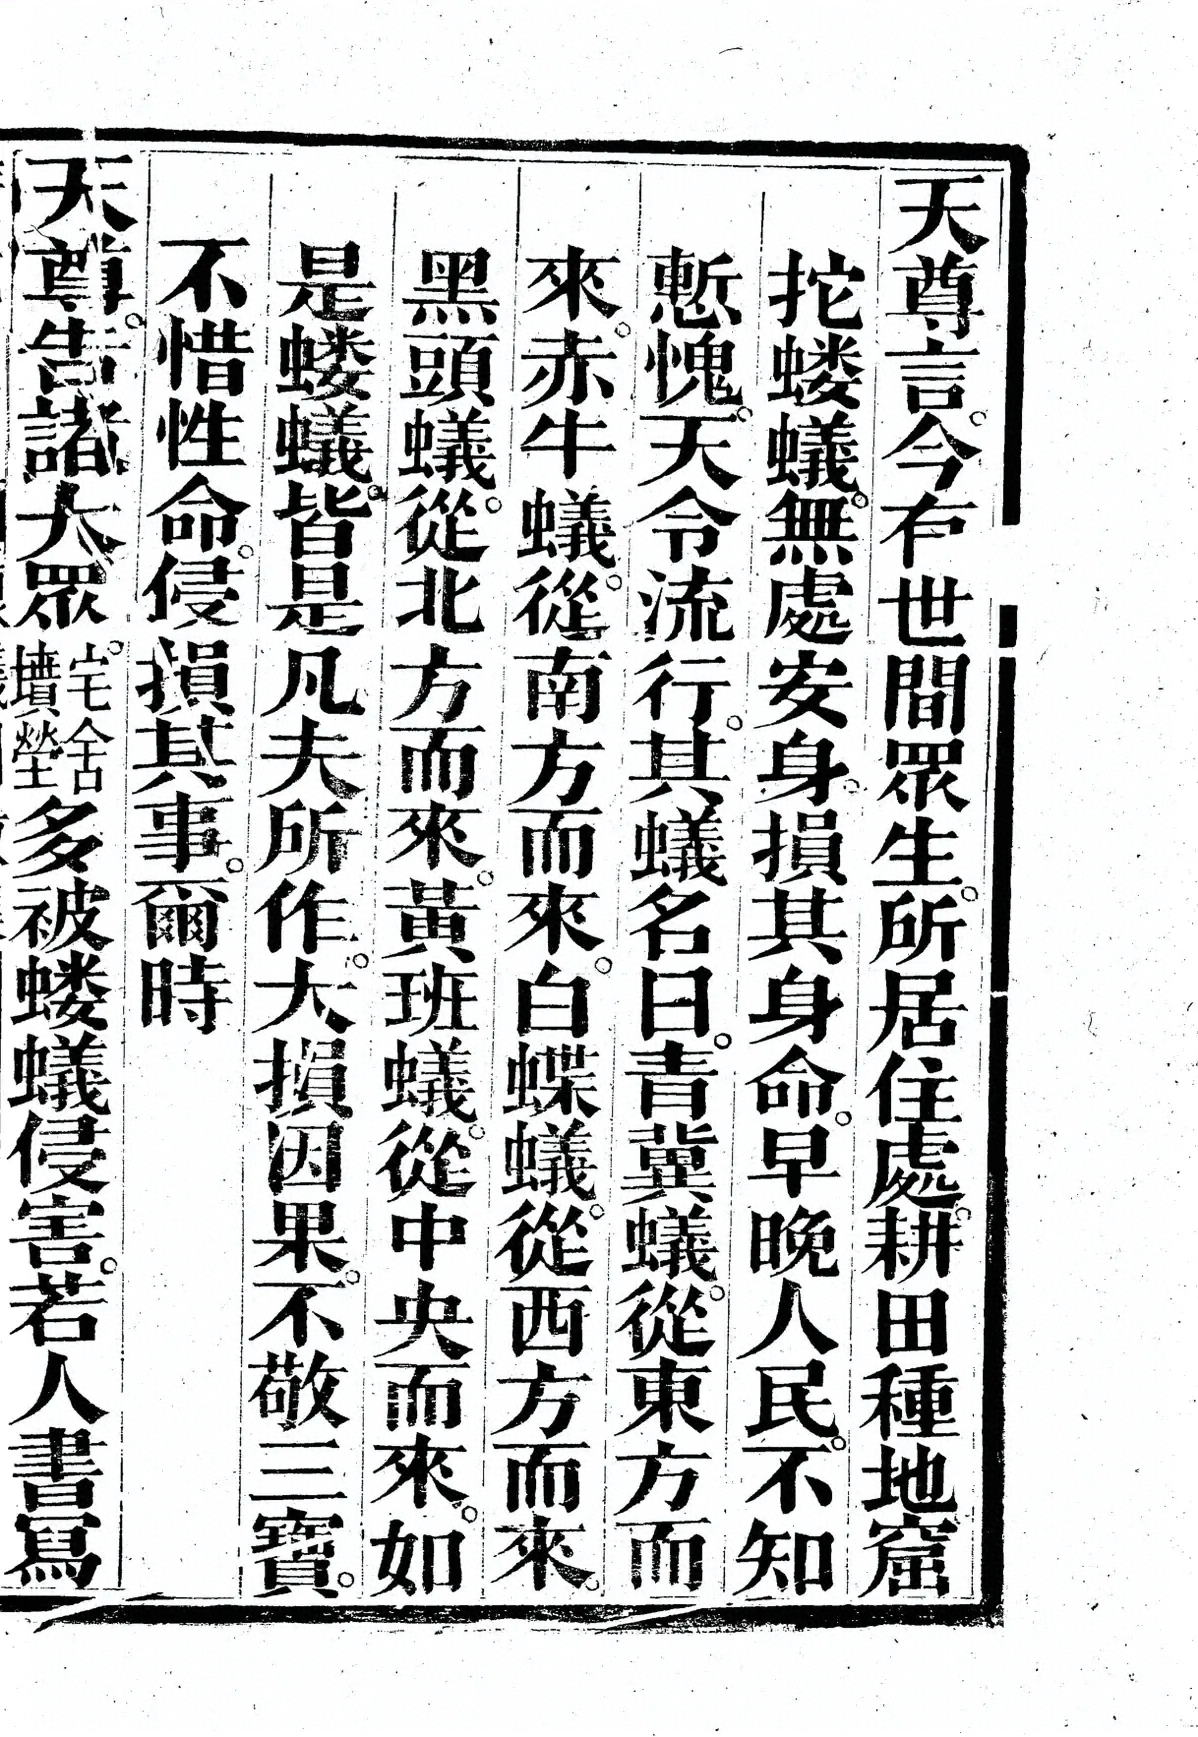 天尊言。今有世間眾生。所居住處。耕田種地窟
挓螻蟻。無處安身。損其身命。早晚人民。不知
慙愧。天令流行。其蟻名曰。青冀蟻。從東方而
來。赤牛蟻。從南方而來。白蝶蟻。從西方而來。
黑頭蟻。從北方而來。黃班蟻。從中央而來。如
是螻蟻。皆是凡夫所作。大損因果。不敬三寶。
不惜性命。侵損其事。爾時
天尊。告諸大眾。宅舍墳塋多被螻蟻侵害。若人書寫